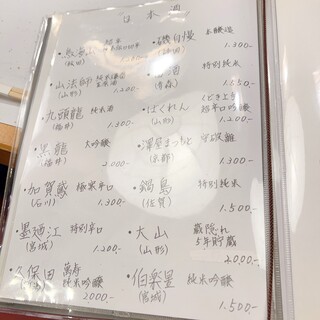 日本酒
・磯自慢 本醸造
1.300-
・山法師 純米
(山形) 1.200-
酒 特別純米
(青森) 1.500-
・九頭龍 純米酒
(福井) 1.300-
・はくれん
(山形) 1.300-
・黒龍 大吟醸
(福井) 2.000-
・澤屋まつもと 守破離
(京都) 1.300-
・加賀蔵 極寒辛口
(石川) 1.300-
・鍋島 特別純米
(佐賀) 1.500-
・墨廼江 特別辛口
(宮城) 1.200-
・大山 蔵隠れ
(山形) 5年貯蔵
2.000-
・久保田 萬寿
純米吟醸
2000-
・伯楽星 純米吟醸
(宮城) 1.500-